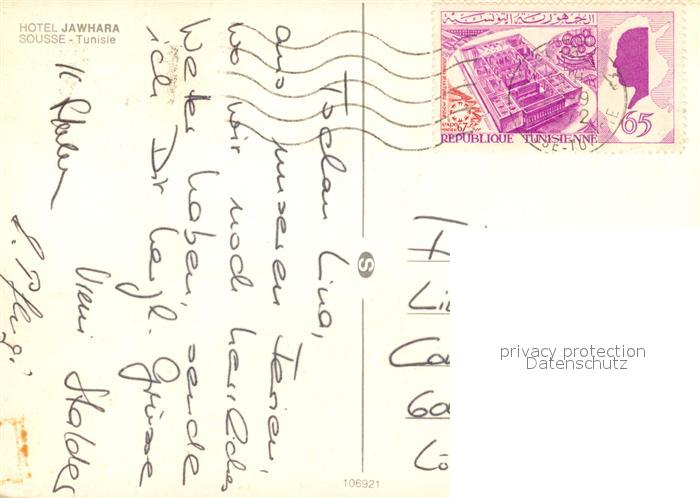 HOTEL JAWHARA
SOUSSE - Tunisie
الجمهورية التونسية
65
67
REPUBLIQUE TUNISIENNE
Lina,
aus unseren Ferien,
wo wir noch herrliches
Wetter haben, sende
ich Dir herzl. Grüsse
Vreni Stalder
S
106921
H
Li
Ca
60
privacy protection
Datenschutz